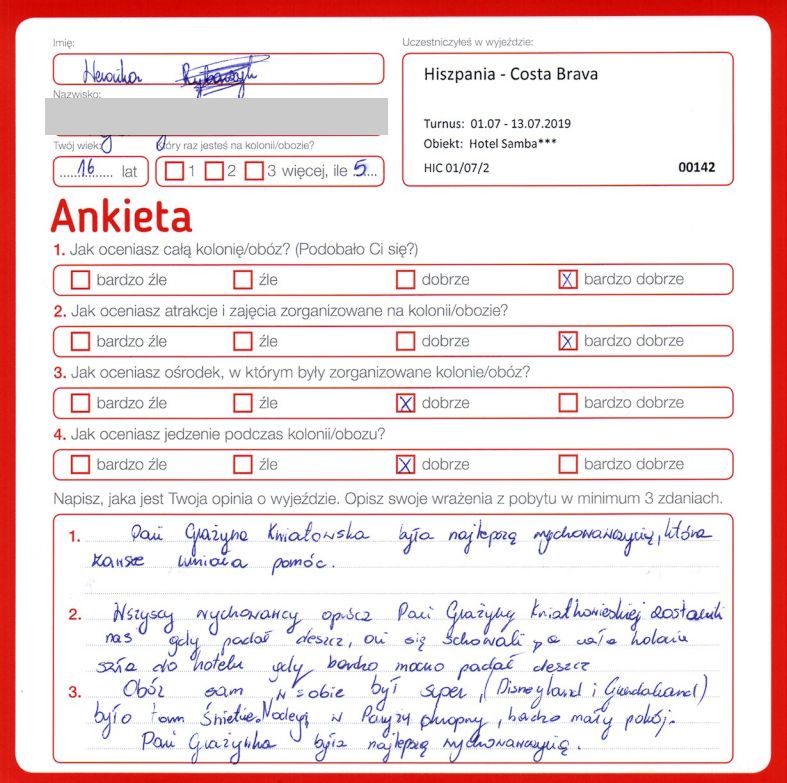 Imię:
Weronika
Nazwisko:
Twój wiek:
16 lat
Który raz jesteś na kolonii/obozie?
1 2 3 więcej, ile 5
Uczestniczyłeś w wyjeździe:
Hiszpania - Costa Brava
Turnus: 01.07 - 13.07.2019
Obiekt: Hotel Samba***
HIC 01/07/2 00142
Ankieta
1. Jak oceniasz całą kolonię/obóz? (Podobało Ci się?)
bardzo źle źle dobrze bardzo dobrze
2. Jak oceniasz atrakcje i zajęcia zorganizowane na kolonii/obozie?
bardzo źle źle dobrze bardzo dobrze
3. Jak oceniasz ośrodek, w którym były zorganizowane kolonie/obóz?
bardzo źle źle dobrze bardzo dobrze
4. Jak oceniasz jedzenie podczas kolonii/obozu?
bardzo źle źle dobrze bardzo dobrze
Napisz, jaka jest Twoja opinia o wyjeździe. Opisz swoje wrażenia z pobytu w minimum 3 zdaniach.
1. Pani Grażyna Kwiatowska była najlepszą wychowawczynią, która
zawsze umiała pomóc.
2. Wszyscy wychowawcy oprócz Pani Grażyny zostawili
nas gdy padał deszcz, oni się schowali a cała kolonia
szła do hotelu gdy bardzo mocno padał deszcz
3. Obóz sam w sobie był super, (Disneyland i
było tam świetnie. w Paryżu okropny, bardzo mały pokój.
Pani Grażynka była najlepszą wychowawczynią.